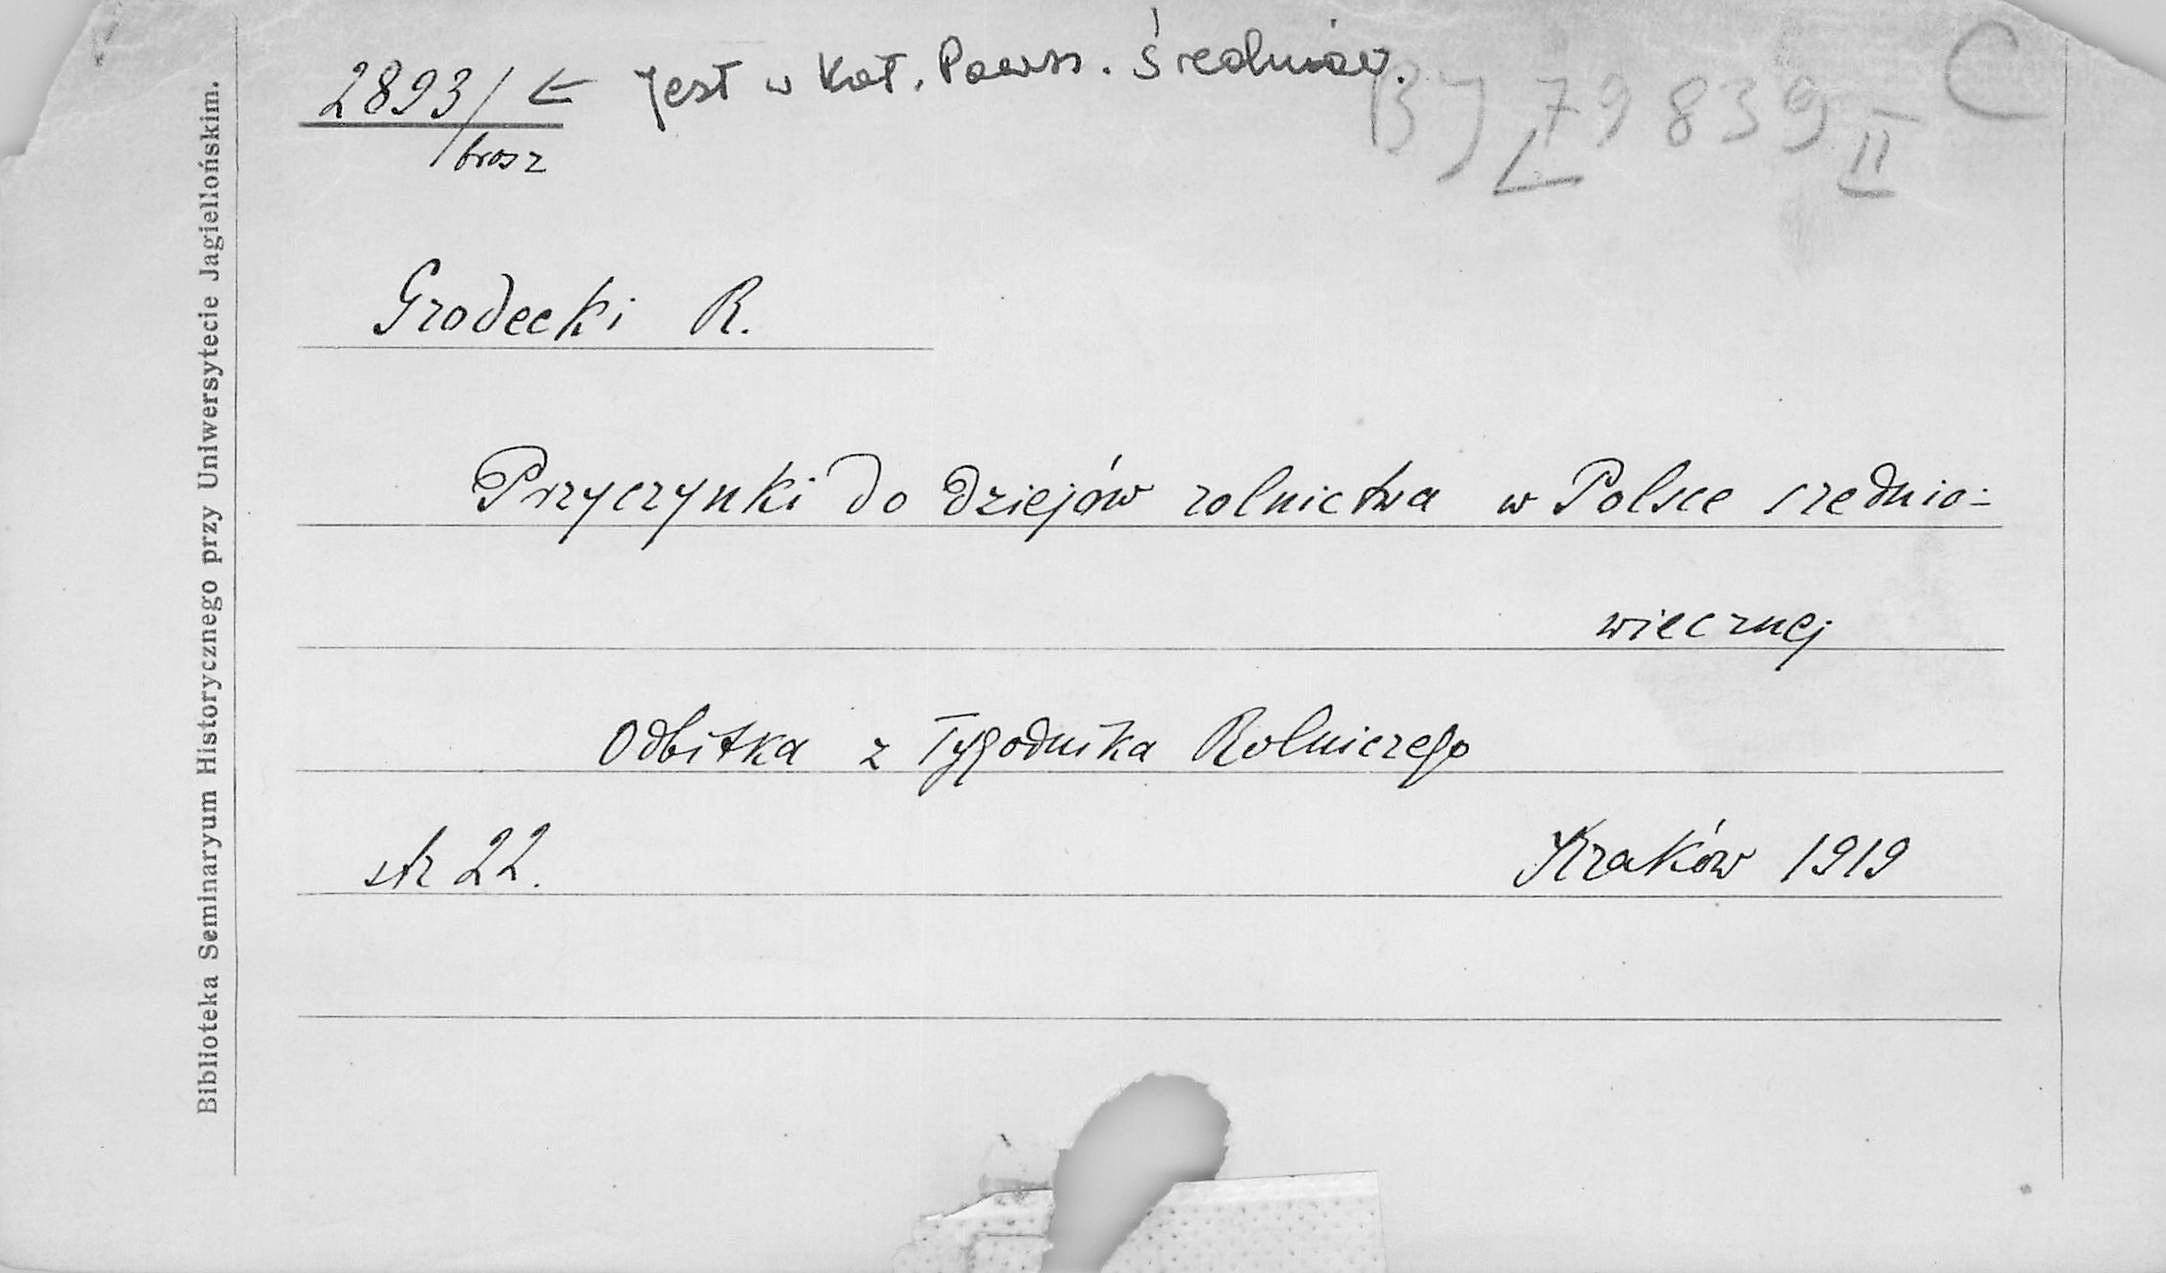 2893/brosz ← Jest w Kat. Powsz. Średniow.
BJ 79839 II C
Grodecki R.
Przyczynki do dziejów rolnictwa w Polsce srednio-
wiecznej
Odbitka z Tygodnika Rolniczego
str 22. Kraków 1919
Biblioteka Seminaryum Historycznego przy Uniwersytecie Jagiellońskim.